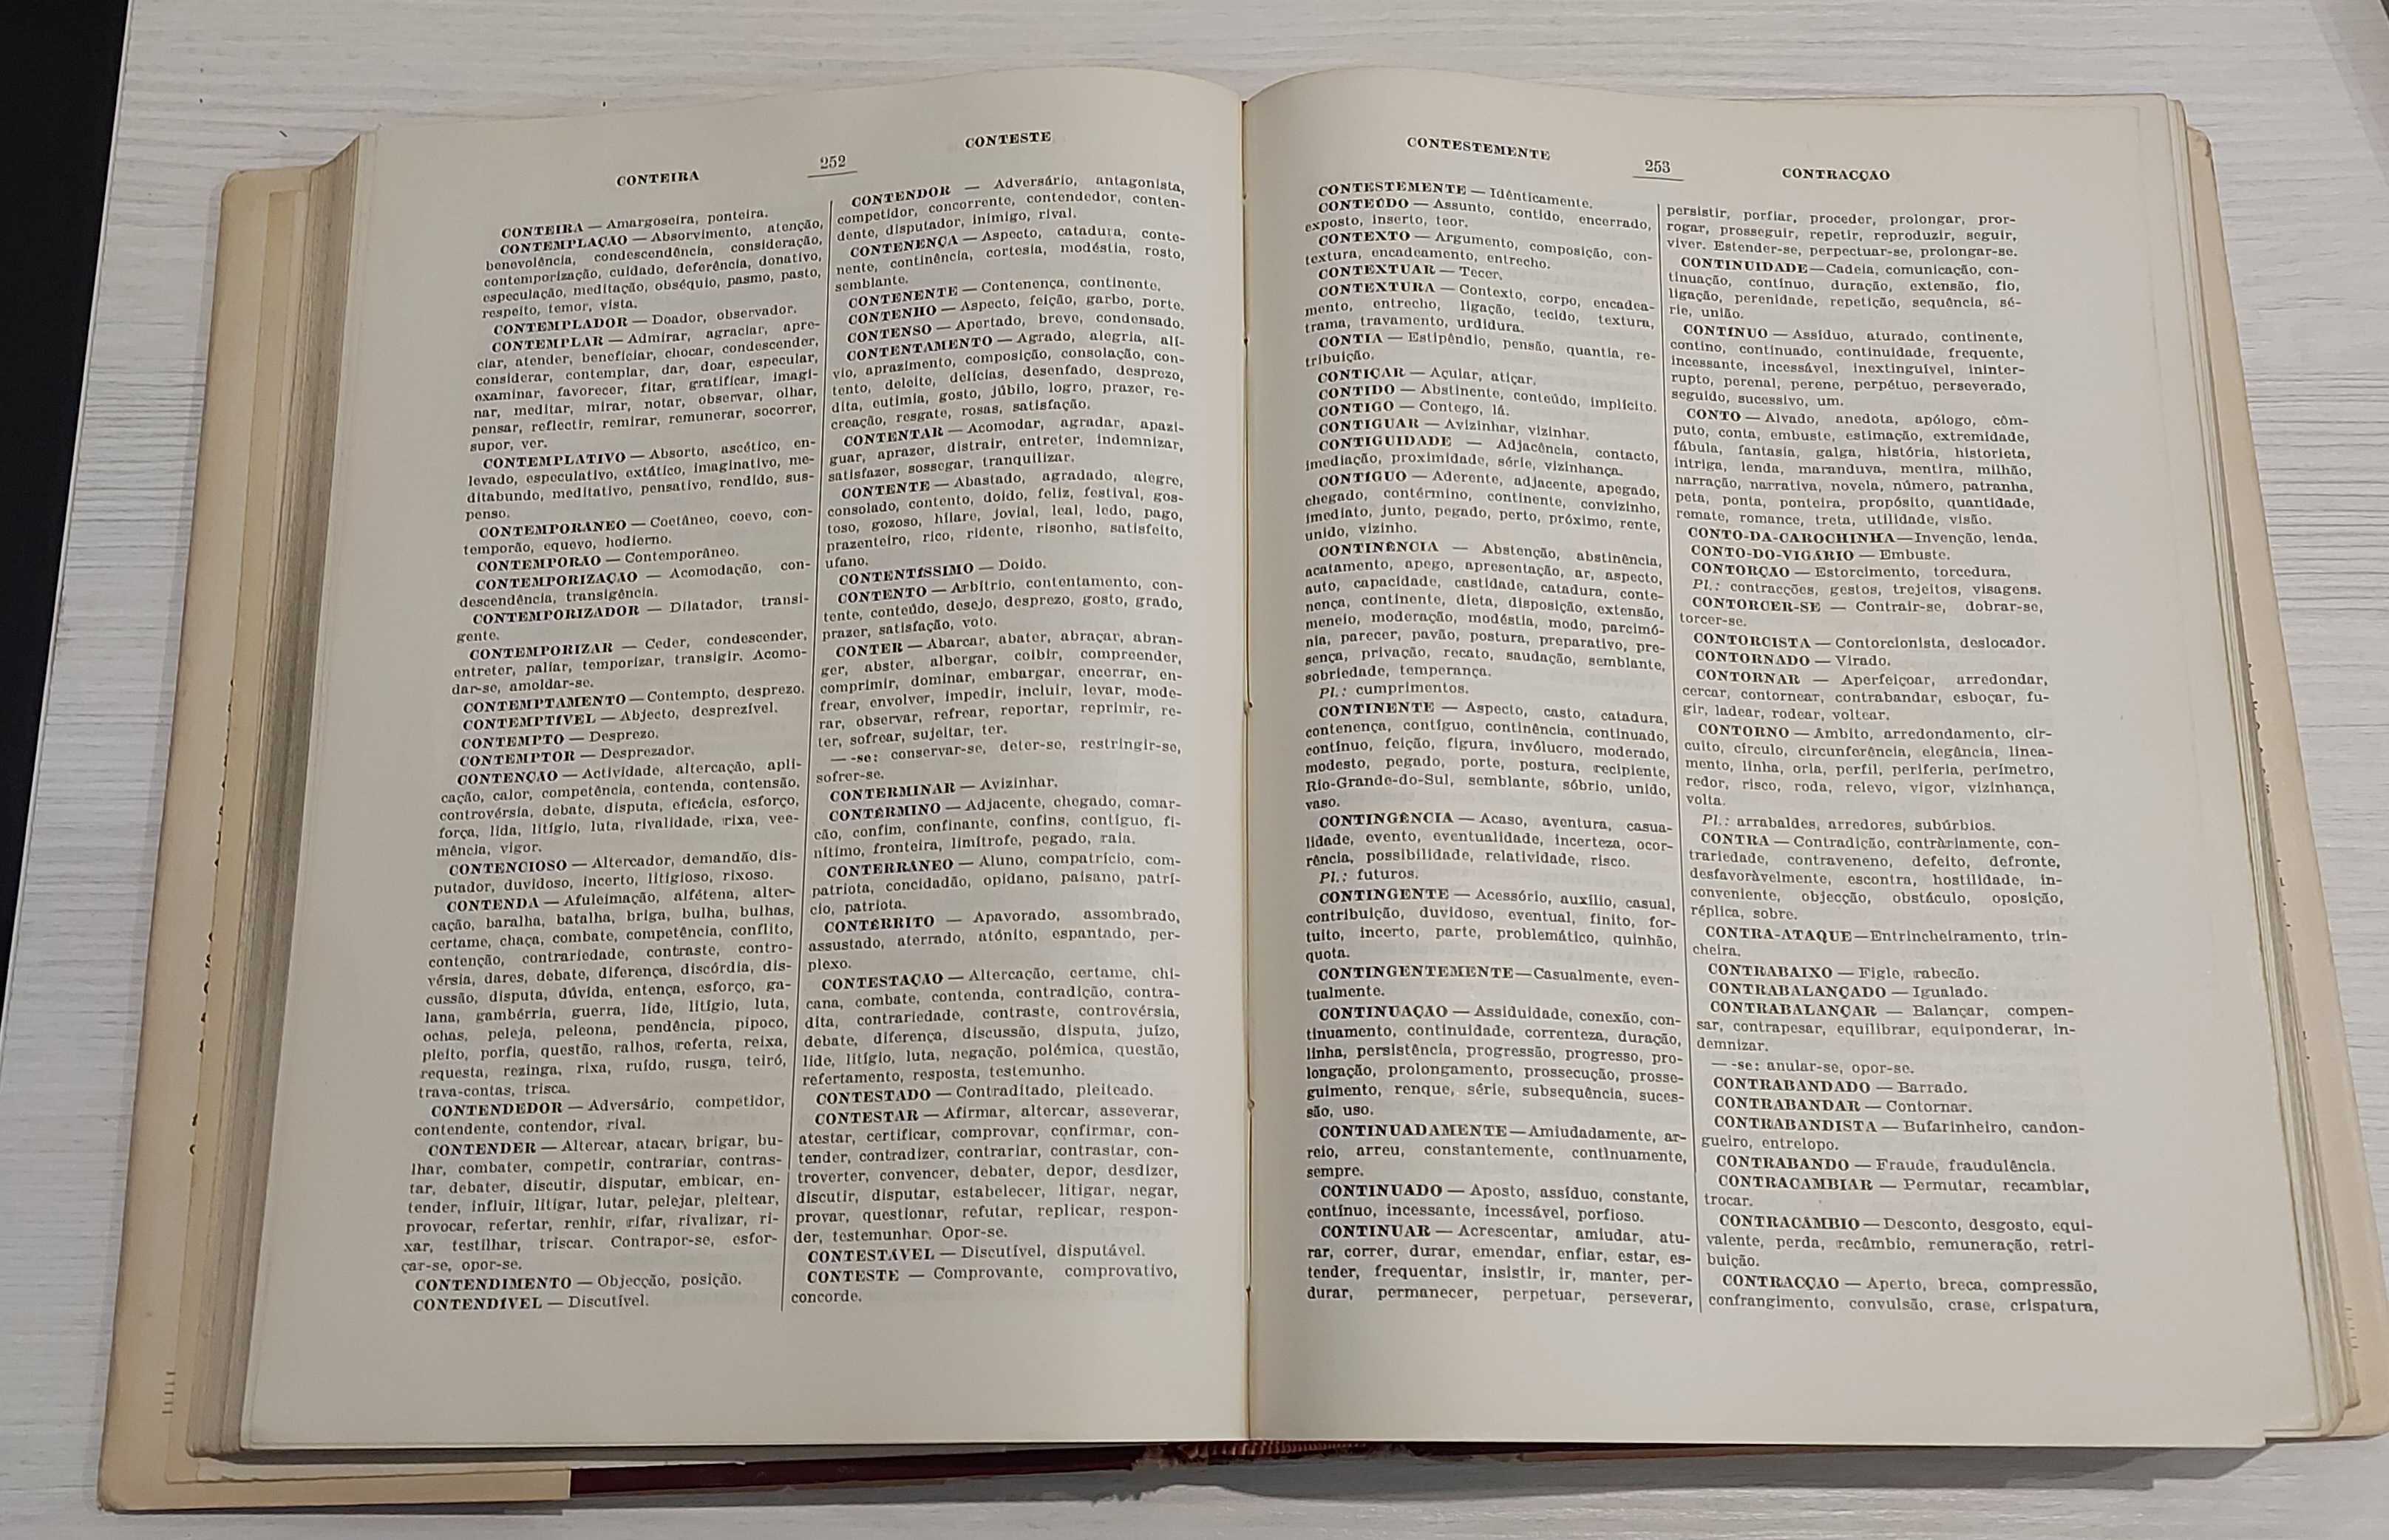 CONTEIRA
252
CONTESTE
CONTEIRA — Amargoseira, ponteira.
CONTEMPLAÇÃO — Absorvimento, atenção,
benevolência, condescendência, consideração,
contemporização, cuidado, deferência, donativo,
especulação, meditação, obséquio, pasmo, pasto,
respeito, temor, vista.
CONTEMPLADOR — Doador, observador.
CONTEMPLAR — Admirar, agraciar, apre-
ciar, atender, beneficiar, chocar, condescender,
considerar, contemplar, dar, doar, especular,
examinar, favorecer, fitar, gratificar, imagi-
nar, meditar, mirar, notar, observar, olhar,
pensar, reflectir, remirar, remunerar, socorrer,
supor, ver.
CONTEMPLATIVO — Absorto, ascético, en-
levado, especulativo, extático, imaginativo, me-
ditabundo, meditativo, pensativo, rendido, sus-
penso.
CONTEMPORÂNEO — Coetâneo, coevo, con-
temporão, equevo, hodierno.
CONTEMPORÃO — Contemporâneo.
CONTEMPORIZAÇÃO — Acomodação, con-
descendência, transigência.
CONTEMPORIZADOR — Dilatador, transi-
gente.
CONTEMPORIZAR — Ceder, condescender,
entreter, paliar, temporizar, transigir. Acomo-
dar-se, amoldar-se.
CONTEMPTAMENTO — Contempto, desprezo.
CONTEMPTÍVEL — Abjecto, desprezível.
CONTEMPTO — Desprezo.
CONTEMPTOR — Desprezador.
CONTENÇÃO — Actividade, altercação, apli-
cação, calor, competência, contenda, contensão,
controvérsia, debate, disputa, eficácia, esforço,
força, lida, litígio, luta, rivalidade, rixa, vee-
mência, vigor.
CONTENCIOSO — Altercador, demandão, dis-
putador, duvidoso, incerto, litigioso, rixoso.
CONTENDA — Afuleimação, alfétena, alter-
cação, baralha, batalha, briga, bulha, bulhas,
certame, chaça, combate, competência, conflito,
contenção, contrariedade, contraste, contro-
vérsia, dares, debate, diferença, discórdia, dis-
cussão, disputa, dúvida, entença, esforço, ga-
lana, gambérria, guerra, lide, litígio, luta,
ochas, peleja, peleona, pendência, pipoco,
pleito, porfia, questão, ralhos, referta, reixa,
requesta, rezinga, rixa, ruído, rusga, teiró,
trava-contas, trisca.
CONTENDEDOR — Adversário, competidor,
contendente, contendor, rival.
CONTENDER — Altercar, atacar, brigar, bu-
lhar, combater, competir, contrariar, contras-
tar, debater, discutir, disputar, embicar, en-
tender, influir, litigar, lutar, pelejar, pleitear,
provocar, refertar, renhir, rifar, rivalizar, ri-
xar, testilhar, triscar. Contrapor-se, esfor-
çar-se, opor-se.
CONTENDIMENTO — Objecção, posição.
CONTENDÍVEL — Discutível.
CONTENDOR — Adversário, antagonista,
competidor, concorrente, contendedor, conten-
dente, disputador, inimigo, rival.
CONTENENÇA — Aspecto, catadura, conte-
nente, continência, cortesia, modéstia, rosto,
semblante.
CONTENENTE — Contenença, continente.
CONTENHO — Aspecto, feição, garbo, porte.
CONTENSO — Apertado, breve, condensado.
CONTENTAMENTO — Agrado, alegria, alí-
vio, aprazimento, composição, consolação, con-
tento, deleite, delícias, desenfado, desprezo,
dita, eutimia, gosto, júbilo, logro, prazer, re-
creação, resgate, rosas, satisfação.
CONTENTAR — Acomodar, agradar, apazi-
guar, aprazer, distrair, entreter, indemnizar,
satisfazer, sossegar, tranquilizar.
CONTENTE — Abastado, agradado, alegre,
consolado, contento, doido, feliz, festival, gos-
toso, gozoso, hílare, jovial, leal, ledo, pago,
prazenteiro, rico, ridente, risonho, satisfeito,
ufano.
CONTENTÍSSIMO — Doido.
CONTENTO — Arbítrio, contentamento, con-
tente, conteúdo, desejo, desprezo, gosto, grado,
prazer, satisfação, voto.
CONTER — Abarcar, abater, abraçar, abran-
ger, abster, albergar, coibir, compreender,
comprimir, dominar, embargar, encerrar, en-
frear, envolver, impedir, incluir, levar, mode-
rar, observar, refrear, reportar, reprimir, re-
ter, sofrear, sujeitar, ter.
— -se: conservar-se, deter-se, restringir-se,
sofrer-se.
CONTERMINAR — Avizinhar.
CONTÉRMINO — Adjacente, chegado, comar-
cão, confim, confinante, confins, contíguo, fi-
nítimo, fronteira, limítrofe, pegado, raia.
CONTERRÂNEO — Aluno, compatrício, com-
patriota, concidadão, opidano, paisano, patrí-
cio, patriota.
CONTÉRRITO — Apavorado, assombrado,
assustado, aterrado, atónito, espantado, per-
plexo.
CONTESTAÇÃO — Altercação, certame, chi-
cana, combate, contenda, contradição, contra-
dita, contrariedade, contraste, controvérsia,
debate, diferença, discussão, disputa, juízo,
lide, litígio, luta, negação, polémica, questão,
refertamento, resposta, testemunho.
CONTESTADO — Contraditado, pleiteado.
CONTESTAR — Afirmar, altercar, asseverar,
atestar, certificar, comprovar, confirmar, con-
tender, contradizer, contrariar, contrastar, con-
troverter, convencer, debater, depor, desdizer,
discutir, disputar, estabelecer, litigar, negar,
provar, questionar, refutar, replicar, respon-
der, testemunhar. Opor-se.
CONTESTÁVEL — Discutível, disputável.
CONTESTE — Comprovante, comprovativo,
concorde.
CONTESTEMENTE
253
CONTRACÇÃO
CONTESTEMENTE — Idênticamente.
CONTEÚDO — Assunto, contido, encerrado,
exposto, inserto, teor.
CONTEXTO — Argumento, composição, con-
textura, encadeamento, entrecho.
CONTEXTUAR — Tecer.
CONTEXTURA — Contexto, corpo, encadea-
mento, entrecho, ligação, tecido, textura,
trama, travamento, urdidura.
CONTIA — Estipêndio, pensão, quantia, re-
tribuição.
CONTIÇAR — Açular, atiçar.
CONTIDO — Abstinente, conteúdo, implícito.
CONTIGO — Contego, lá.
CONTIGUAR — Avizinhar, vizinhar.
CONTIGUIDADE — Adjacência, contacto,
imediação, proximidade, série, vizinhança.
CONTÍGUO — Aderente, adjacente, apegado,
chegado, contérmino, continente, convizinho,
imediato, junto, pegado, perto, próximo, rente,
unido, vizinho.
CONTINÊNCIA — Abstenção, abstinência,
acatamento, apego, apresentação, ar, aspecto,
auto, capacidade, castidade, catadura, conte-
nença, continente, dieta, disposição, extensão,
meneio, moderação, modéstia, modo, parcimó-
nia, parecer, pavão, postura, preparativo, pre-
sença, privação, recato, saudação, semblante,
sobriedade, temperança.
Pl.: cumprimentos.
CONTINENTE — Aspecto, casto, catadura,
contenença, contíguo, continência, continuado,
contínuo, feição, figura, invólucro, moderado,
modesto, pegado, porte, postura, recipiente,
Rio-Grande-do-Sul, semblante, sóbrio, unido,
vaso.
CONTINGÊNCIA — Acaso, aventura, casua-
lidade, evento, eventualidade, incerteza, ocor-
rência, possibilidade, relatividade, risco.
Pl.: futuros.
CONTINGENTE — Acessório, auxílio, casual,
contribuição, duvidoso, eventual, finito, for-
tuito, incerto, parte, problemático, quinhão,
quota.
CONTINGENTEMENTE — Casualmente, even-
tualmente.
CONTINUAÇÃO — Assiduidade, conexão, con-
tinuamento, continuidade, correnteza, duração,
linha, persistência, progressão, progresso, pro-
longação, prolongamento, prossecução, prosse-
guimento, renque, série, subsequência, suces-
são, uso.
CONTINUADAMENTE — Amiudadamente, ar-
reio, arreu, constantemente, contìnuamente,
sempre.
CONTINUADO — Aposto, assíduo, constante,
contínuo, incessante, incessável, porfioso.
CONTINUAR — Acrescentar, amiudar, atu-
rar, correr, durar, emendar, enfiar, estar, es-
tender, frequentar, insistir, ir, manter, per-
durar, permanecer, perpetuar, perseverar,
persistir, porfiar, proceder, prolongar, pror-
rogar, prosseguir, repetir, reproduzir, seguir,
viver. Estender-se, perpectuar-se, prolongar-se.
CONTINUIDADE — Cadeia, comunicação, con-
tinuação, contínuo, duração, extensão, fio,
ligação, perenidade, repetição, sequência, sé-
rie, união.
CONTÍNUO — Assíduo, aturado, continente,
contino, continuado, continuidade, frequente,
incessante, incessável, inextinguível, ininter-
rupto, perenal, perene, perpétuo, perseverado,
seguido, sucessivo, um.
CONTO — Alvado, anedota, apólogo, côm-
puto, conta, embuste, estimação, extremidade,
fábula, fantasia, galga, história, historieta,
intriga, lenda, maranduva, mentira, milhão,
narração, narrativa, novela, número, patranha,
peta, ponta, ponteira, propósito, quantidade,
remate, romance, treta, utilidade, visão.
CONTO-DA-CAROCHINHA — Invenção, lenda.
CONTO-DO-VIGÁRIO — Embuste.
CONTORÇÃO — Estorcimento, torcedura.
Pl.: contracções, gestos, trejeitos, visagens.
CONTORCER-SE — Contrair-se, dobrar-se,
torcer-se.
CONTORCISTA — Contorcionista, deslocador.
CONTORNADO — Virado.
CONTORNAR — Aperfeiçoar, arredondar,
cercar, contornear, contrabandar, esboçar, fu-
gir, ladear, rodear, voltear.
CONTORNO — Âmbito, arredondamento, cir-
cuito, círculo, circunferência, elegância, linea-
mento, linha, orla, perfil, periferia, perímetro,
redor, risco, roda, relevo, vigor, vizinhança,
volta.
Pl.: arrabaldes, arredores, subúrbios.
CONTRA — Contradição, contràriamente, con-
trariedade, contraveneno, defeito, defronte,
desfavoràvelmente, escontra, hostilidade, in-
conveniente, objecção, obstáculo, oposição,
réplica, sobre.
CONTRA-ATAQUE — Entrincheiramento, trin-
cheira.
CONTRABAIXO — Figle, rabecão.
CONTRABALANÇADO — Igualado.
CONTRABALANÇAR — Balançar, compen-
sar, contrapesar, equilibrar, equiponderar, in-
demnizar.
— -se: anular-se, opor-se.
CONTRABANDADO — Barrado.
CONTRABANDAR — Contornar.
CONTRABANDISTA — Bufarinheiro, candon-
gueiro, entrelopo.
CONTRABANDO — Fraude, fraudulência.
CONTRACAMBIAR — Permutar, recambiar,
trocar.
CONTRACÂMBIO — Desconto, desgosto, equi-
valente, perda, recâmbio, remuneração, retri-
buição.
CONTRACÇÃO — Aperto, breca, compressão,
confrangimento, convulsão, crase, crispatura,